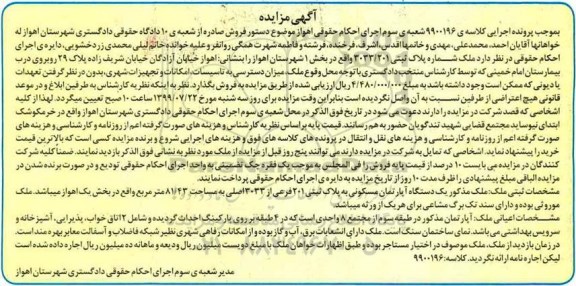 آگهی مزایده
بموجب پرونده اجرایی کلاسه ی ۹۹۰۰۱۹۶ شعبه ی سوم اجرای احکام حقوقی اهواز موضوع دستور فروش صادره از شعبه ی ۱۰ دادگاه حقوقی دادگستری شهرستان اهواز له
خواهانها آقایان احمد، محمدعلی، مهدی و خانمها اقدس، اشرف، فرخنده، فرشته و فاطمه شهرت همگی وانفر و علیه خوانده خانم لیلی محمدی زردخشویی، دایره ی اجرای
احکام حقوقی در نظر دارد ملک شماره پلاک ثبتی ۳۰۳۳/۲۰۱ واقع در بخش ۱ شهرستان اهواز را بنشانی: اهواز خیابان آزادگان خیابان شریف زاده پلاک ۲۹ روبروی درب
بیمارستان امام خمینی که توسط کارشناس منتخب دادگستری با توجه محل وقوع ملک و میزان دسترسی به تاسیسات و امکانات و تجهیزات شهری، بدون در نظر گرفتن تعهدات
یا دیونی که ممکن است وجود داشته باشد به مبلغ ۴/۴۸۰/۰۰۰/۰۰۰ ریال ارزیابی شده از طریق مزایده به فروش بگذارد. نظر به اینکه نظریه کارشناس به طرفین ابلاغ و در موعد
قانونی هیچ اعتراضی از طرفین نسبت به آن واصل نگردیده است بنابراین وقت مزایده برای روز سه شنبه مورخ ۱۳۹۹/۰۷/۲۲ ساعت ۱۰ صبح تعیین میگردد. لذا از کلیه
اشخاصی که قصد شرکت در مزایده را دارند دعوت می شود در تاریخ فوق الذکر در محل شعبه ی سوم اجرای احکام حقوقی دادگستری شهرستان اهواز واقع در خرمکوشک
ابتدای نیوساید مجتمع قضایی شهید تندگویان حضور به هم رسانند. قیمت پایه براساس نظریه کارشناس و هزینه های صورت گرفته اعم از روزنامه و کارشناسی و هزینه های
صورت گرفته اعم از روزنامه و کارشناسی و هزینه های نقل و انتقال در پرونده های کلاسه های فوق و هزینه های اجرایی شروع و برنده مزایده کسی است که بالاترین قیمت
خرید را پیشنهاد نماید. اشخاصی که تمایل به شرکت در مزایده دارند می توانند پنج روز قبل از مزایده از ملک مورد نظر به نشانی فوق الذکر بازدید نمایند. ضمناً کلیه شرکت
کنندگان در مزایده می بایست ۱۰ درصد از قیمت پایه فروش را فی المجلس به موجب یک فقره چک تضمینی به واحد اجرای احکام حقوقی تودیع و در صورت برنده شدن در
مزایده الباقی مبلغ پیشنهادی را ظرف مدت ۱۰ روز از تاریخ مزایده به دایره ی اجرای احکام حقوقی پرداخت نمایند.
مشخصات ثبتی ملک: ملک مذکور یک دستگاه آپارتمان مسکونی به پلاک ثبتی ۲۰۱ فرعی از ۳۰۳۳ اصلی به مساحت ۸۱/۴۳ متر مربع واقع در بخش یک اهواز میباشد. ملک
موروثی بوده و دارای سند تک برگ مشاعی برای هر یک از ورثه میباشد.
مشخصات اعیانی ملک: آپارتمان مذکور در طبقه سوم از مجتمع ۸ واحدی است که در ۴ طبقه بر روی پارکینگ احداث گردیده و شامل ۲ اتاق خواب، پذیرایی، آشپزخانه و
سرویس بهداشتی می باشد. نمای ساختمان سنگ است. ملک دارای انشعابات برق، آب و گاز بوده و از امکانات رفاهی شهری نظیر شبکه فاضلاب و آسفالت معابر بهره مند است.
در زمان بازدید از ملک، ملک موصوف در اختیار مستاجر بوده و طبق اظهارات خواهان ملک با مبلغ دویست میلیون ریال ودیعه و ماهانه ده میلیون ریال اجاره داده شده است
لیکن اجاره نامه ارائه نگردید. کلاسه: ۹۹۰۰۱۹۶
مدیر شعبه ی سوم اجرای احکام حقوقی دادگستری شهرستان اهواز